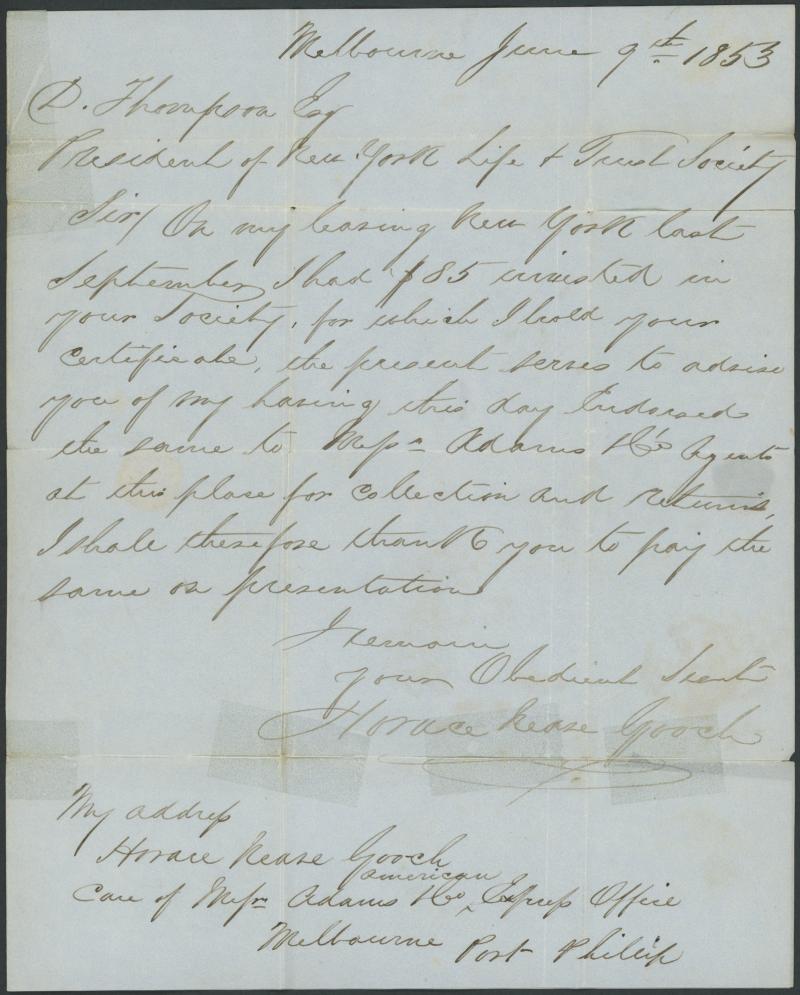 Melbourne June 9th 1853
D. Thompson Esq
President of New York Life & Trust Society
Sir/ On my leaving New York last
September I had $85 invested in
your Society, for which I hold your
Certificate, the present serves to advise
you of my having this day Endorsed
the same to Messrs Adams & Co Agents
at this place for collection and returns,
I shall therefore thank you to pay the
same on presentation
I remain
your Obedient Servt
Horace Nease Gooch
My address
Horace Nease Gooch
american
Care of Messrs Adams & Co ^ Express Office
Melbourne Port Phillip